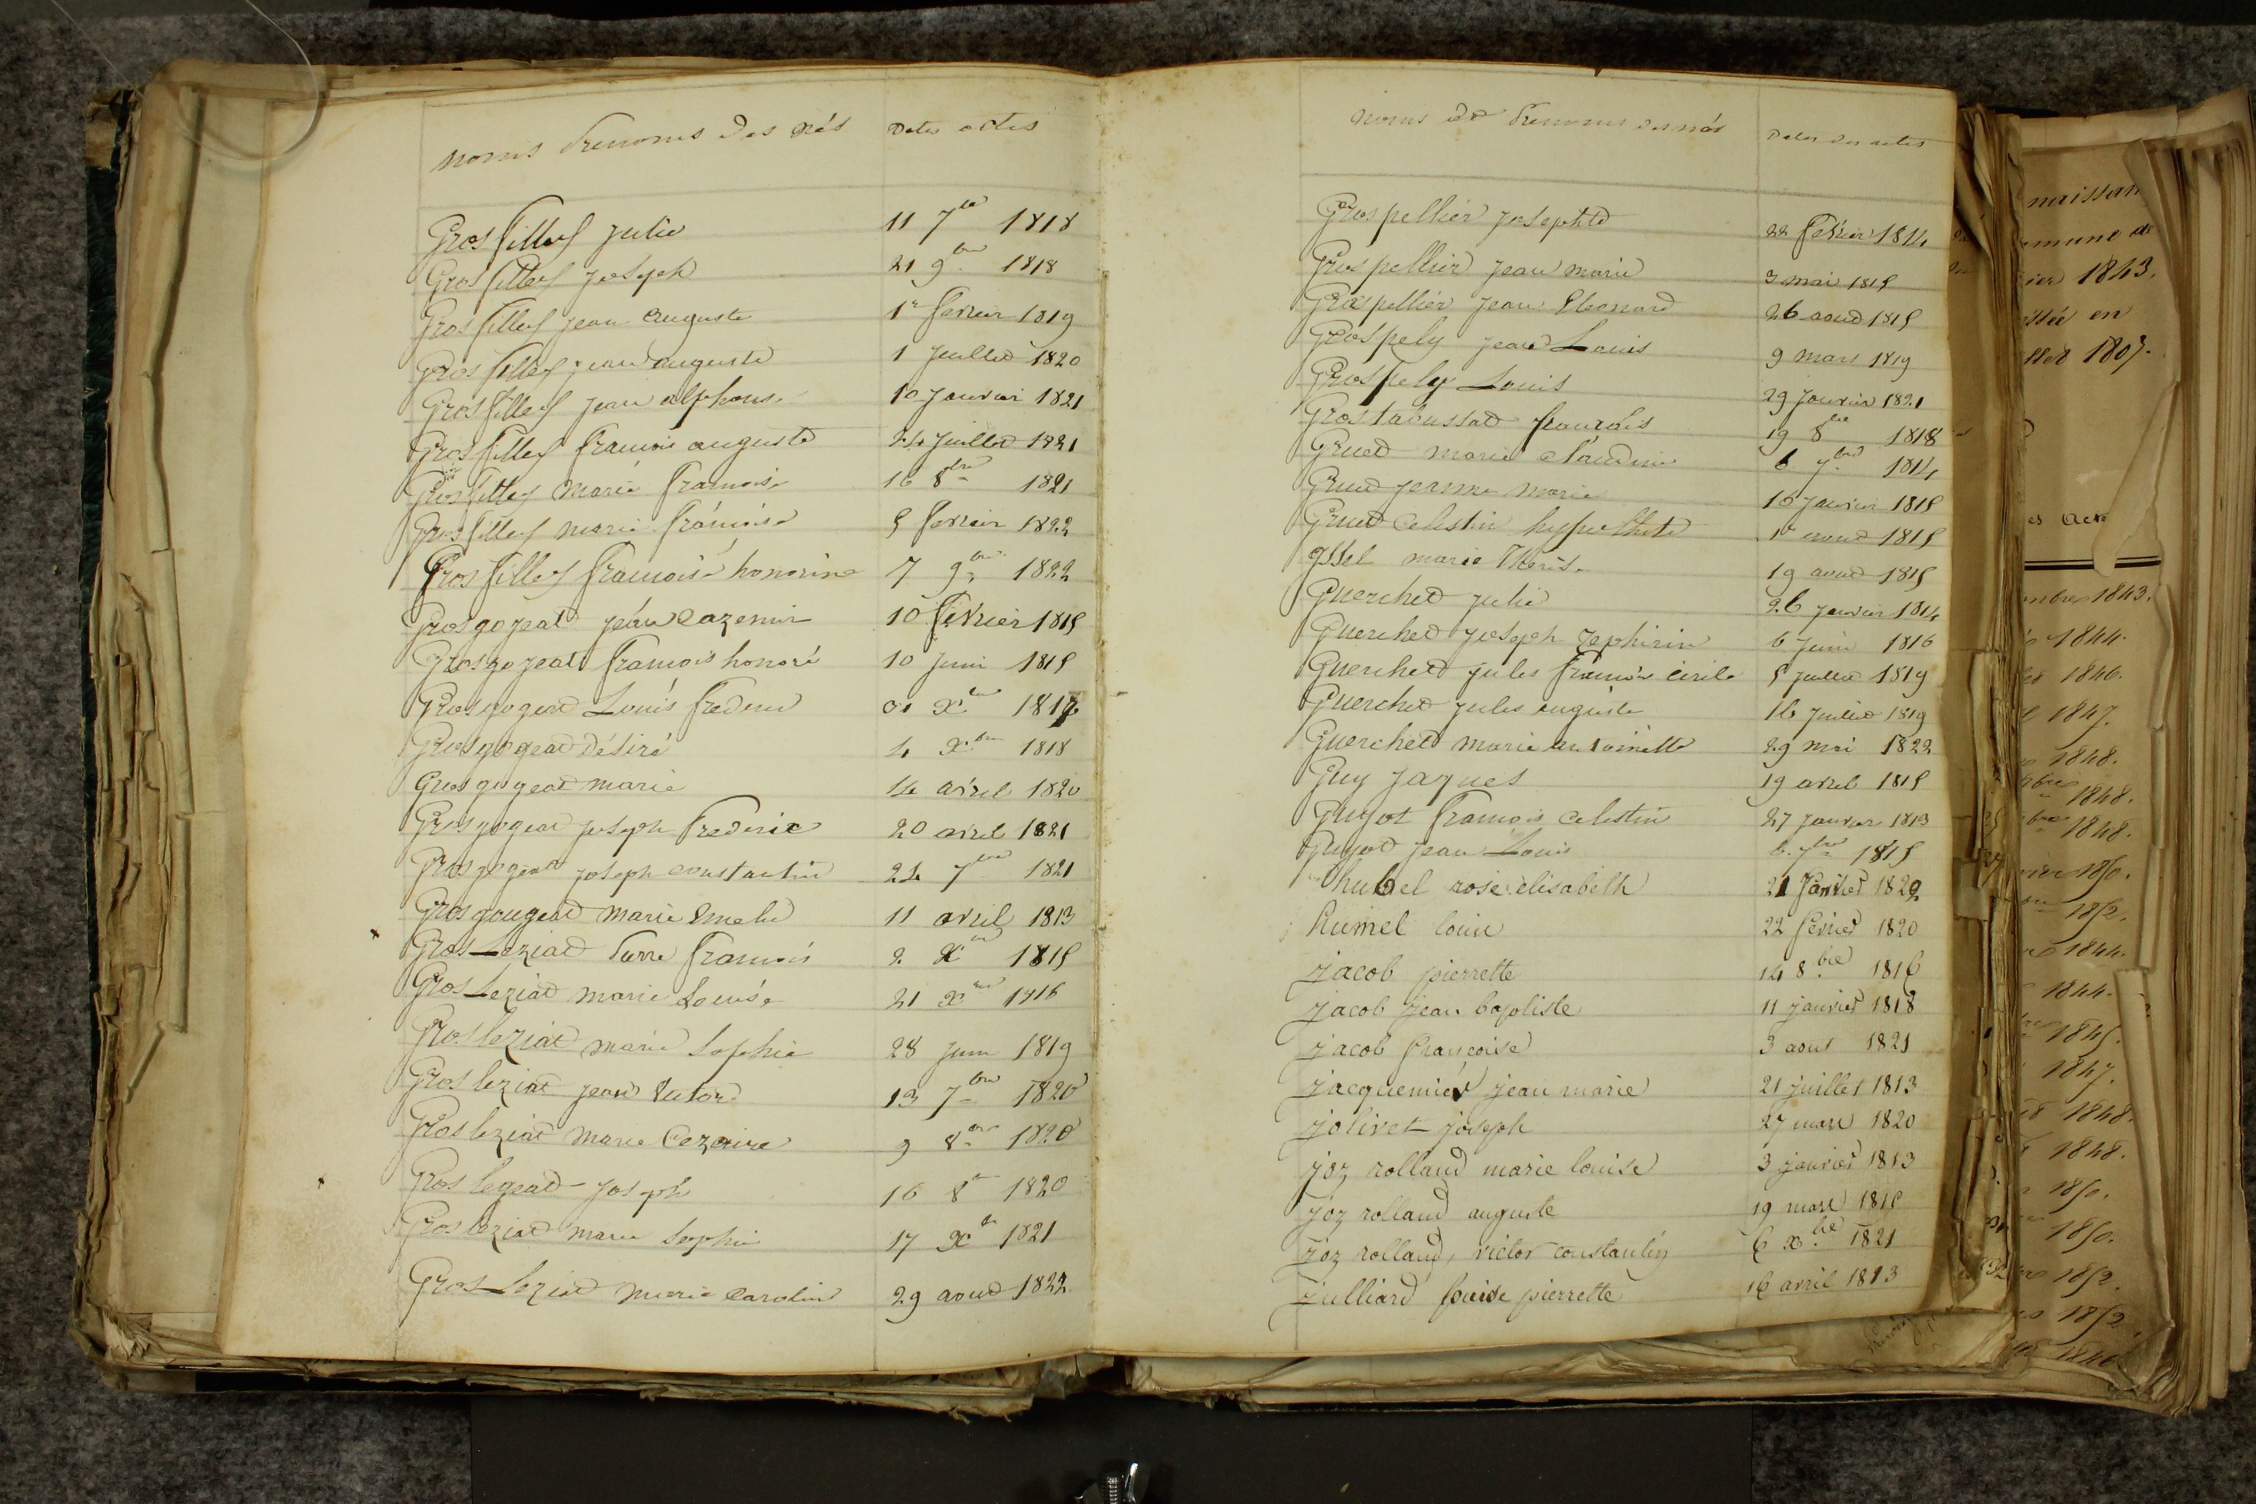 noms Prenoms des nés Dates actes
Grosfilley Julie 11 7bre 1818
Grosfilley Joseph 21 9bre 1818
Grosfilley Jean Auguste 1er fevrier 1819
Grosfilley Jean auguste 1 Juillet 1820
Grosfilley Jean alphonse 10 Janvier 1821
Grosfilley francois auguste 24 Juillet 1821
Grosfilley marie francoise 16 8bre 1821
Grosfilley marie francoise 5 fevrier 1822
Grosfilley francoise honorine 7 9bre 1822
Grosgogeat jean Cazemir 10 fevrier 1815
Grosgogeat francois honoré 10 Juin 1815
Grosgogeat Louis frederic Xbre
Grosgogeat Désiré 4 Xbre 1818
Grosgogeat marie 14 avril 1820
Grosgogeat joseph frederic 20 avril 1821
Grosgogeat joseph constantin 24 7bre 1821
Grosgougeat marie Emelie 11 avril 1813
GrosLeziat Pierre francois 2 Xbre 1815
GrosLeziat marie Louise 21 Xbre 1816
Grosleziat marie Sophie 28 Juin 1819
Grosleziat jean Victor 13 7bre 1820
Grosleziat marie Cezarine 9 8bre 1820
Roslegeat Joseph 16 8bre 1820
Grosleziat marie Sophie 17 Xbre 1821
GrosLeziat marie Caroline 29 aout 1822
noms et Prenoms des nés Dates des actes
Grospellier Josephte 22 fevrier 1814
Grospellier Jean marie 3 mai 1815
Grospellier Jean Eleonard 26 aout 1815
Grospely Jean Louis 9 mars 1819
Grospely Louis 29 Janvier 1821
Grostabussat francois 19 8bre 1818
Gruet marie claudine 6 7bre 1814
Gruet jeanne marie 16 janvier 1815
Gruet Celestin hyppolhite 1er aout 1815
gssel marie Therese 19 aout 1815
Guerchet Julie 26 janvier 1814
Guerchet joseph Zephirin 6 Juin 1816
Guerchet jules francois cirile 5 juillet 1819
Guerchet jules auguste 16 juillet 1819
Guerchet marie antoinette 29 mai 1822
Guy Jaques 19 avril 1815
Guyot francois Celestin 27 janvier 1813
Guyot jean Louis 6 7bre 1815
hubel rose elisabeth 21 Janvier 1822
humel louise 22 fevrier 1820
jacob pierrette 14 8bre 1816
jacob jean baptiste 11 janvier 1818
jacob francoise 3 aout 1821
jacquemier jean marie 21 juillet 1813
jolivet joseph 27 mars 1820
joz rolland marie louise 3 janvier 1813
joz rolland auguste 19 mars 1815
joz rolland, victor constantin 6 xbre 1821
julliard louise pierrette 16 avril 1813